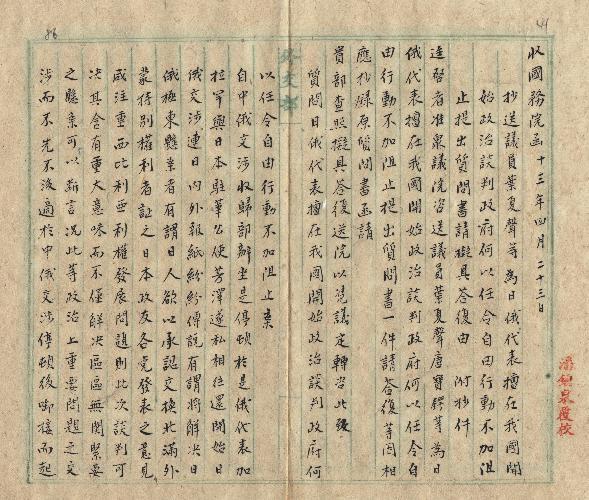 收國務院函 十三年四月二十三日
抄送議員葉夏聲等為日俄代表擅在我國開
始政治談判政府何以任令自由行動不加阻
止提出質問書請擬具答復由 附抄件
逕啓者准衆議院咨送議員葉夏聲唐寶鍔等為日
俄代表擅在我國開始政治談判政府何以任令自
由行動不加阻止提出質問書一件請答復等因相
應抄錄原質問書函請
貴部查照擬具答復送院以憑議定轉咨此致
質問日俄代表擅在我國開始政治談判政府何
外交部
以任令自由行動不加阻止案
自中俄交涉收歸部辦坐是停頓於是俄代表加
拉罕與日本駐華公使芳澤遂私相往還開始日
俄交涉連日內外報紙紛紛傳說有謂將解決日
俄極東懸案者有謂日人欲以承認交換北滿外
蒙特別權利者証之日本政友各党發表之意見
咸注重西比利亞利權發展問題則此次談判可
決其含有重大意味而不僅解決區區無關緊要
之懸案可以斷言况此等政治上重要問題之交
涉而不先不後適於中俄交涉停頓後啣接而起
86